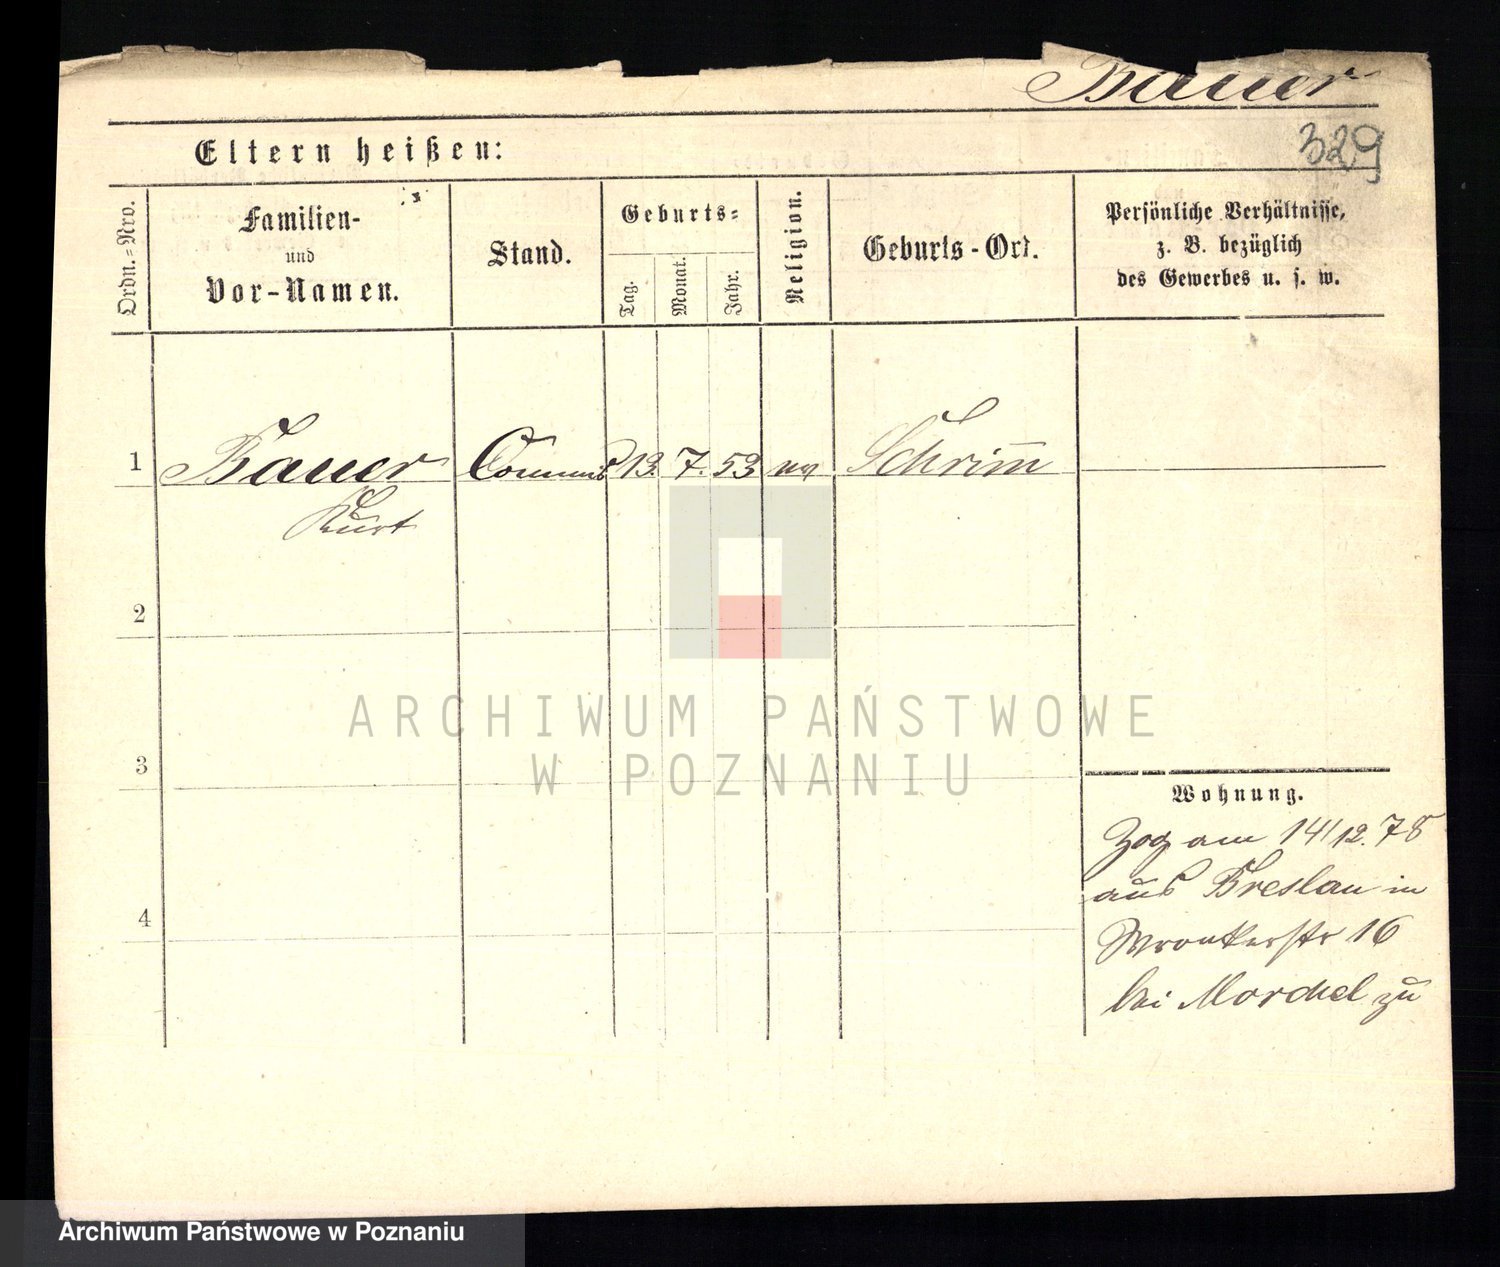 Bauer
329
Eltern heißen:
Ordn.=Nro.
Familien-
und
Vor-Namen.
Stand.
Geburts=
Tag.
Monat.
Jahr.
Religion.
Geburts-Ort.
Persönliche Verhältnisse,
z. B. bezüglich
des Gewerbes u. s. w.
1 Bauer 13. 7. 53 Schrim̅
Kurt
2
3
4
Wohnung.
Zog am 14/12. 78
aus Breslau in
Wronkerstr 16
bei Morchel zu
ARCHIWUM PAŃSTWOWE
W POZNANIU
Archiwum Państwowe w Poznaniu